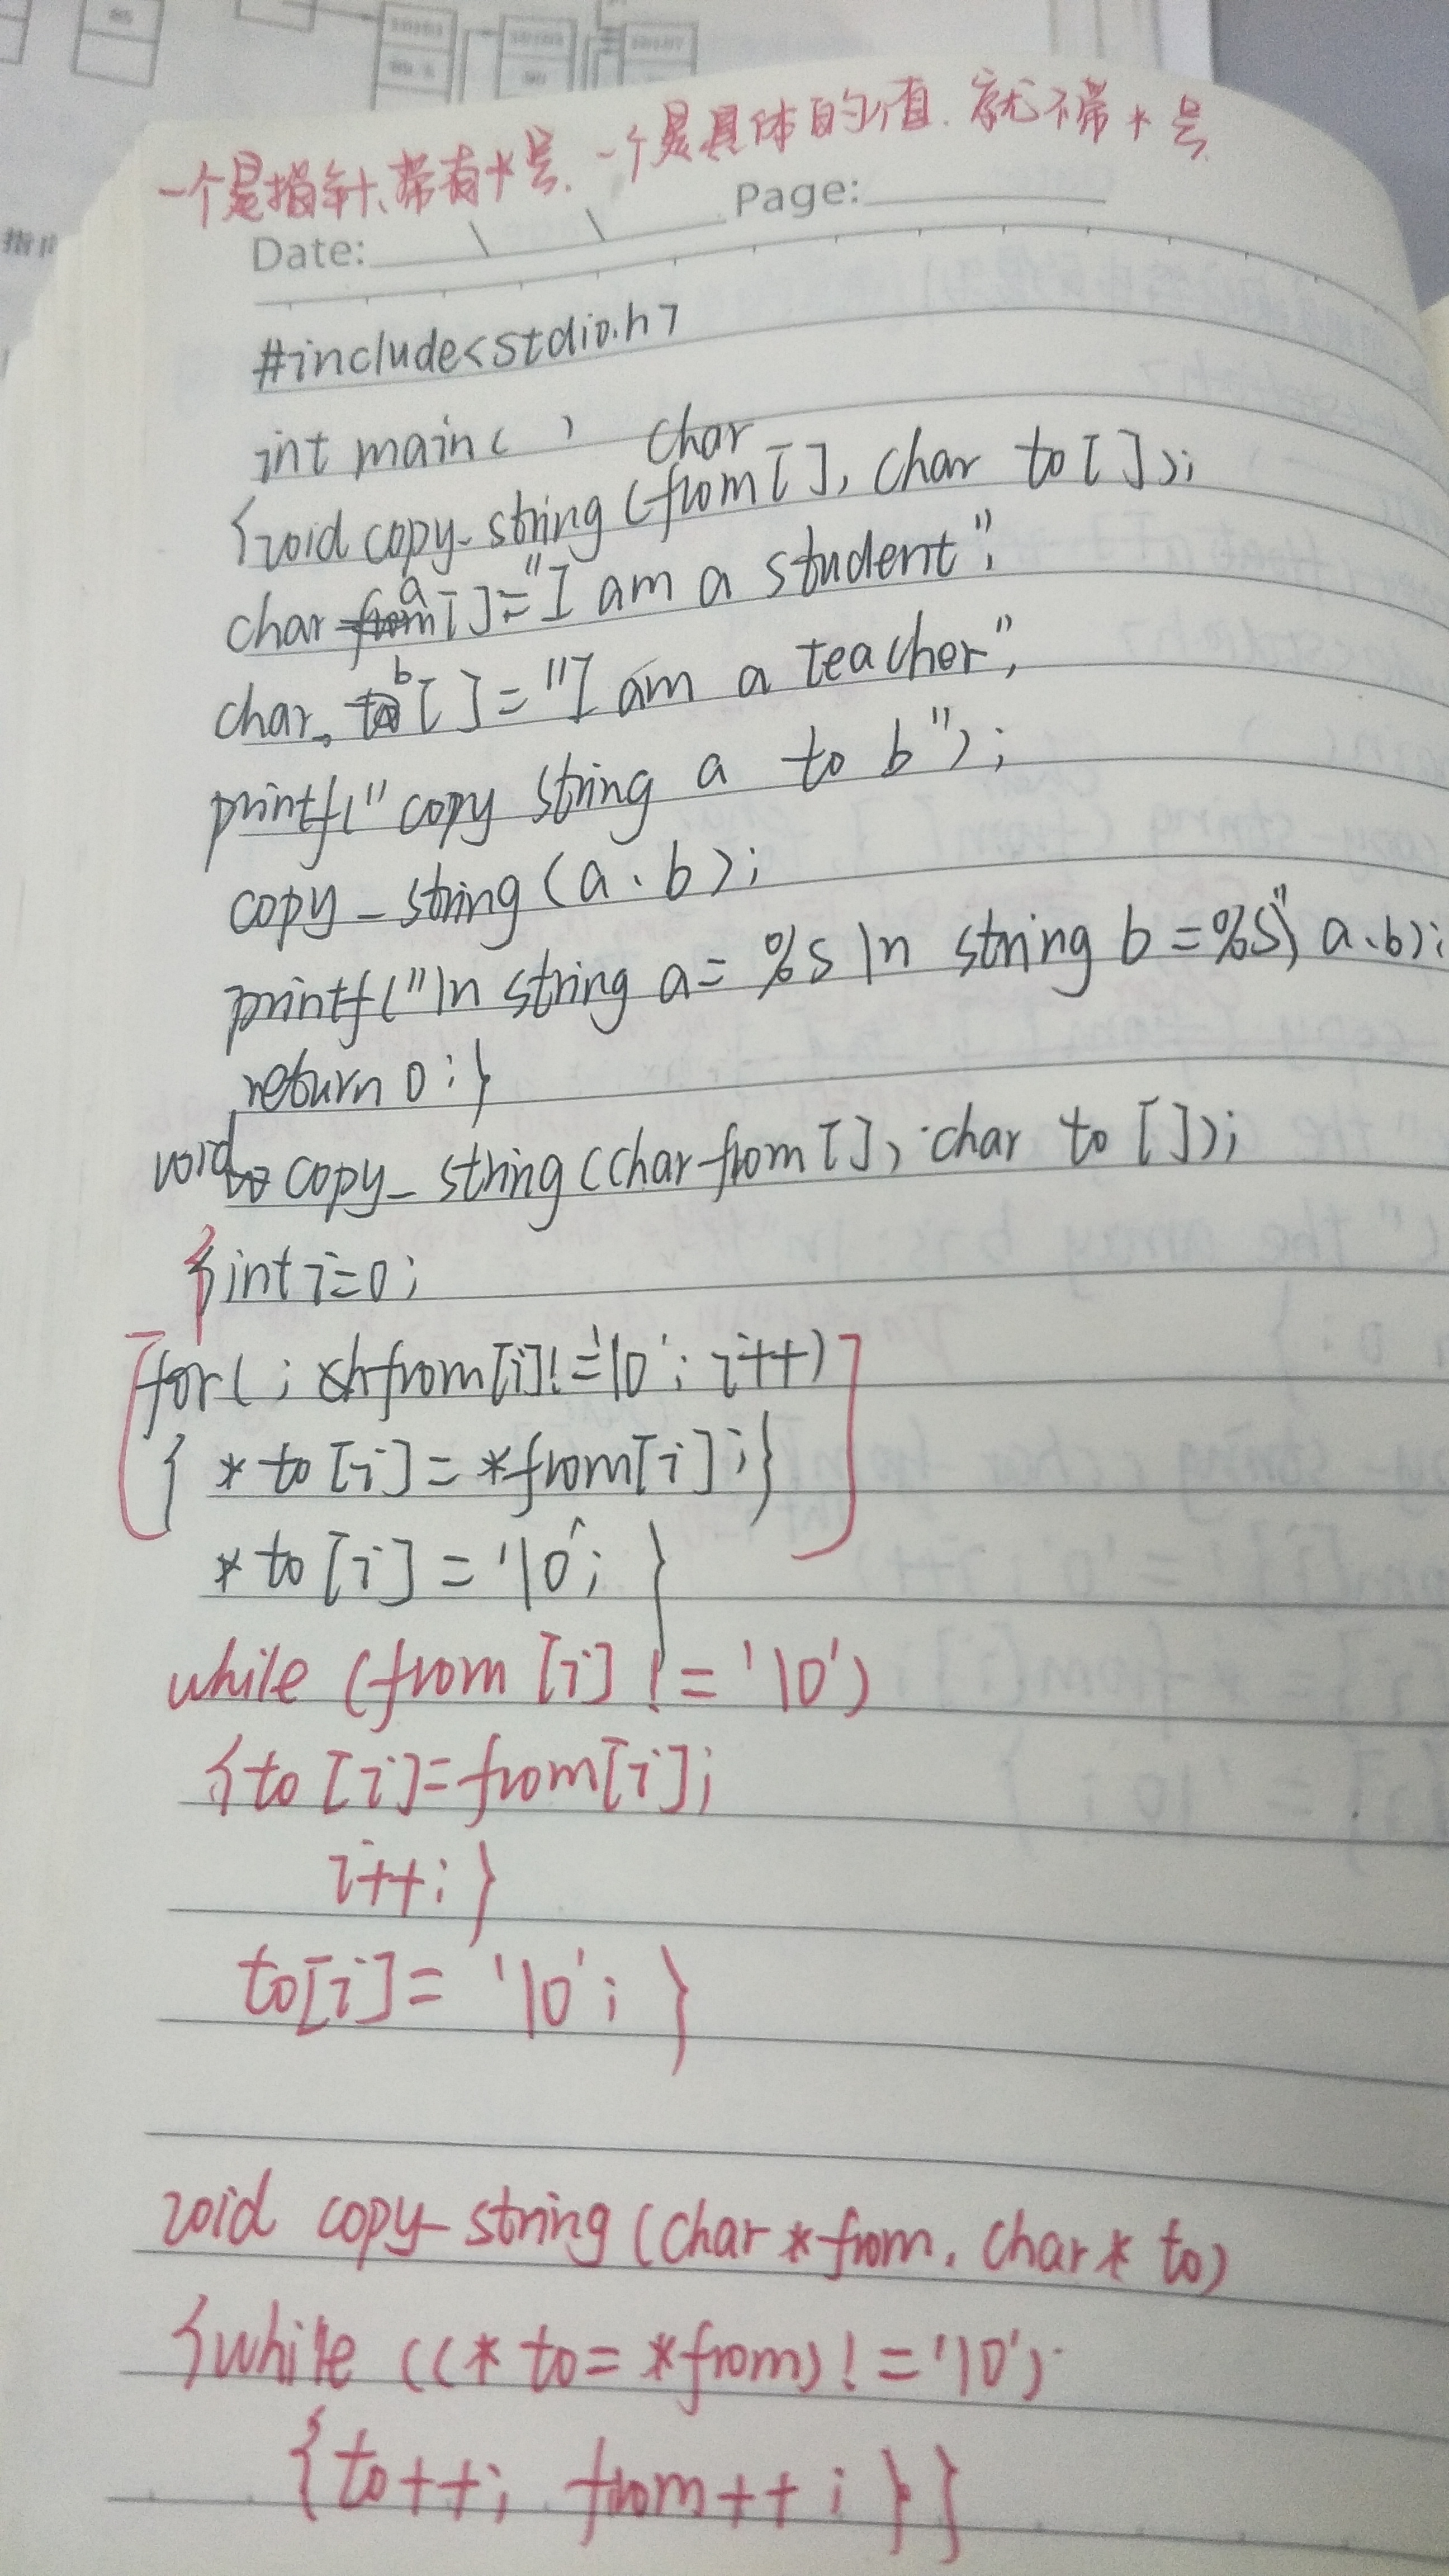 一个是指针、带有*号、一个是具体的值.就不带*号.
Date: \ \ Page:
#include<stdio.h>
int main( )
{void copy_string (char from[], char to[]);
char a[]="I am a student";
char b[]="I am a teacher";
printf("copy string a to b");
copy_string(a、b);
printf("\n string a=%s\n string b=%s", a、b);
return 0;}
void copy_string(char from[], char to []);
{int i=0;
for( ; from[i]!='\0'; i++)
{ *to[i]=*from[i];}
*to[i]='\0'; }
while (from [i] != '\0')
{to [i]=from[i];
i++;}
to[i]= '\0'; }
void copy_string (char *from, char * to)
{while ((* to= *from)!='\0')
{to++; from++; } }